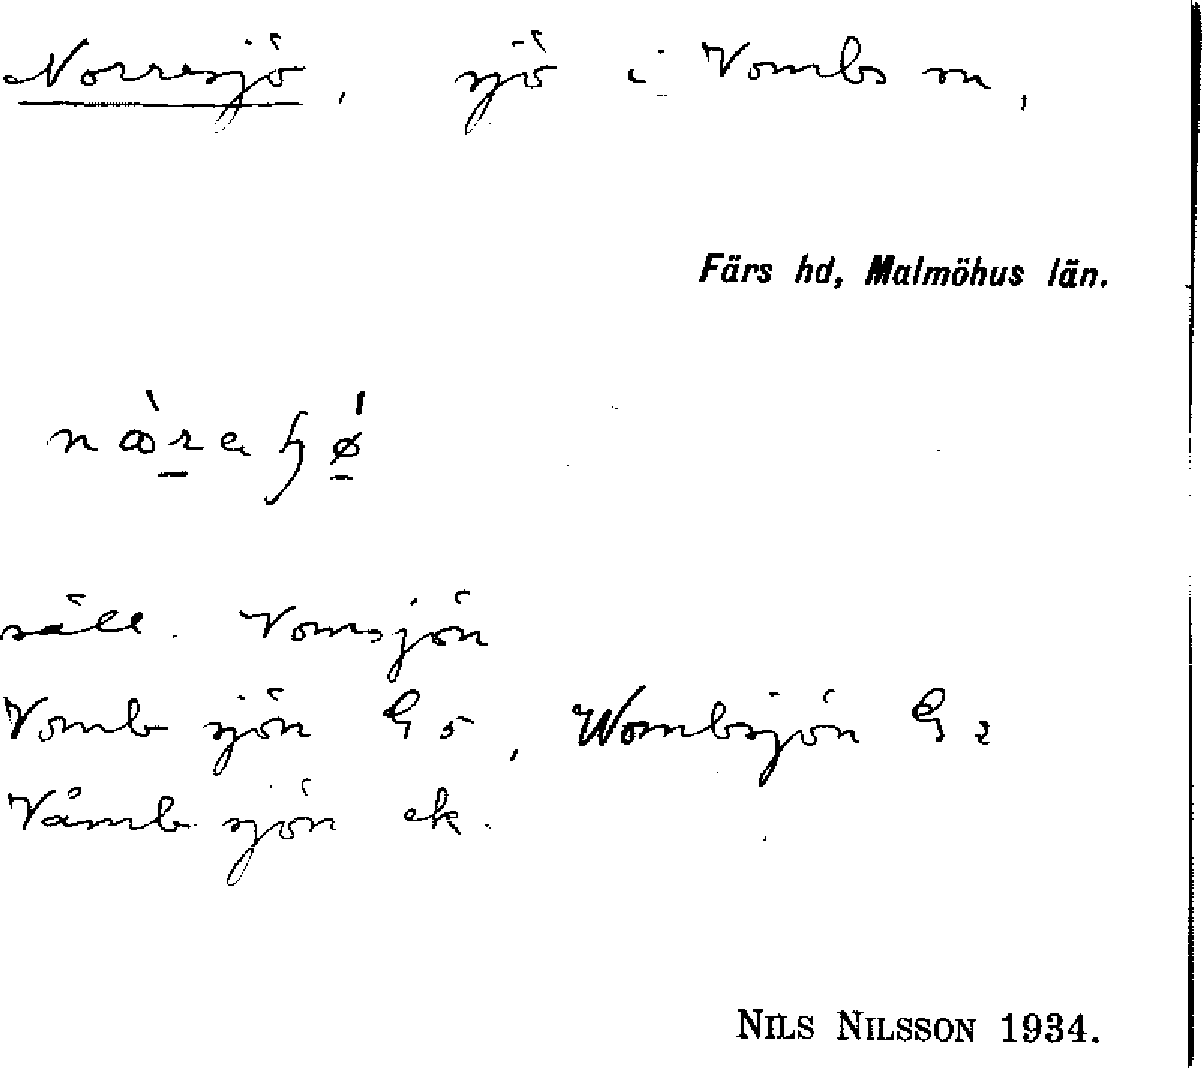 Norresjö, sjö i Vombs sn,
Färs hd, Malmöhus län.
säll. Vomsjön
Vomb sjön G 5, Wombsjön G 2
Våmb sjön ek.
NILS NILSSON 1934.